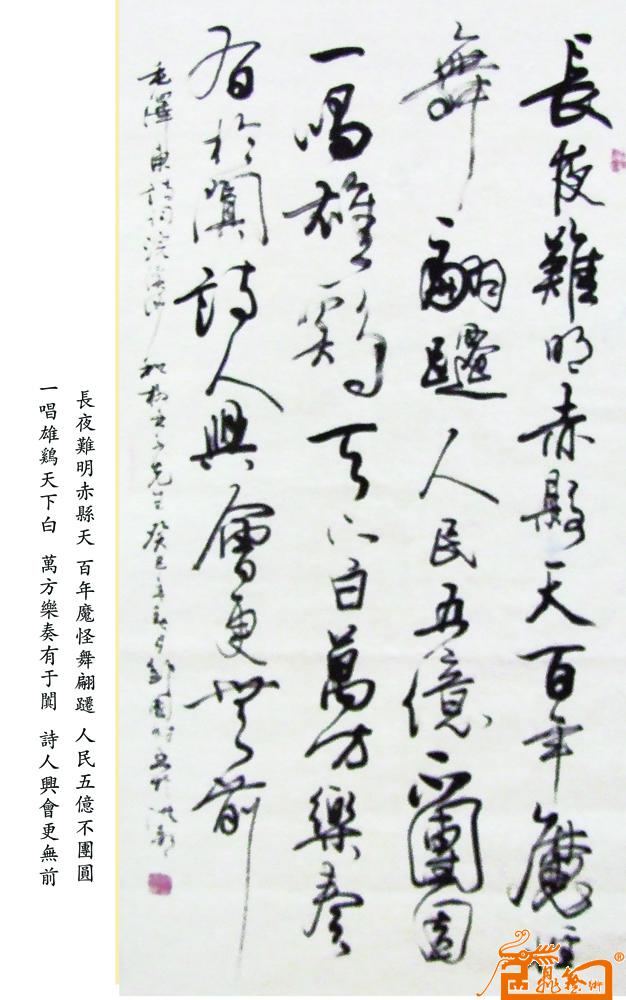 長夜難明赤縣天百年魔怪
舞翩躚人民五億不團圓
一唱雄鷄天下白萬方樂奏
有於闐詩人興會更無前
毛澤東詩詞浣溪沙 和柳亞子先生 癸巳年
長夜難明赤縣天 百年魔怪舞翩躚 人民五億不團圓
一唱雄鷄天下白 萬方樂奏有于闐 詩人興會更無前